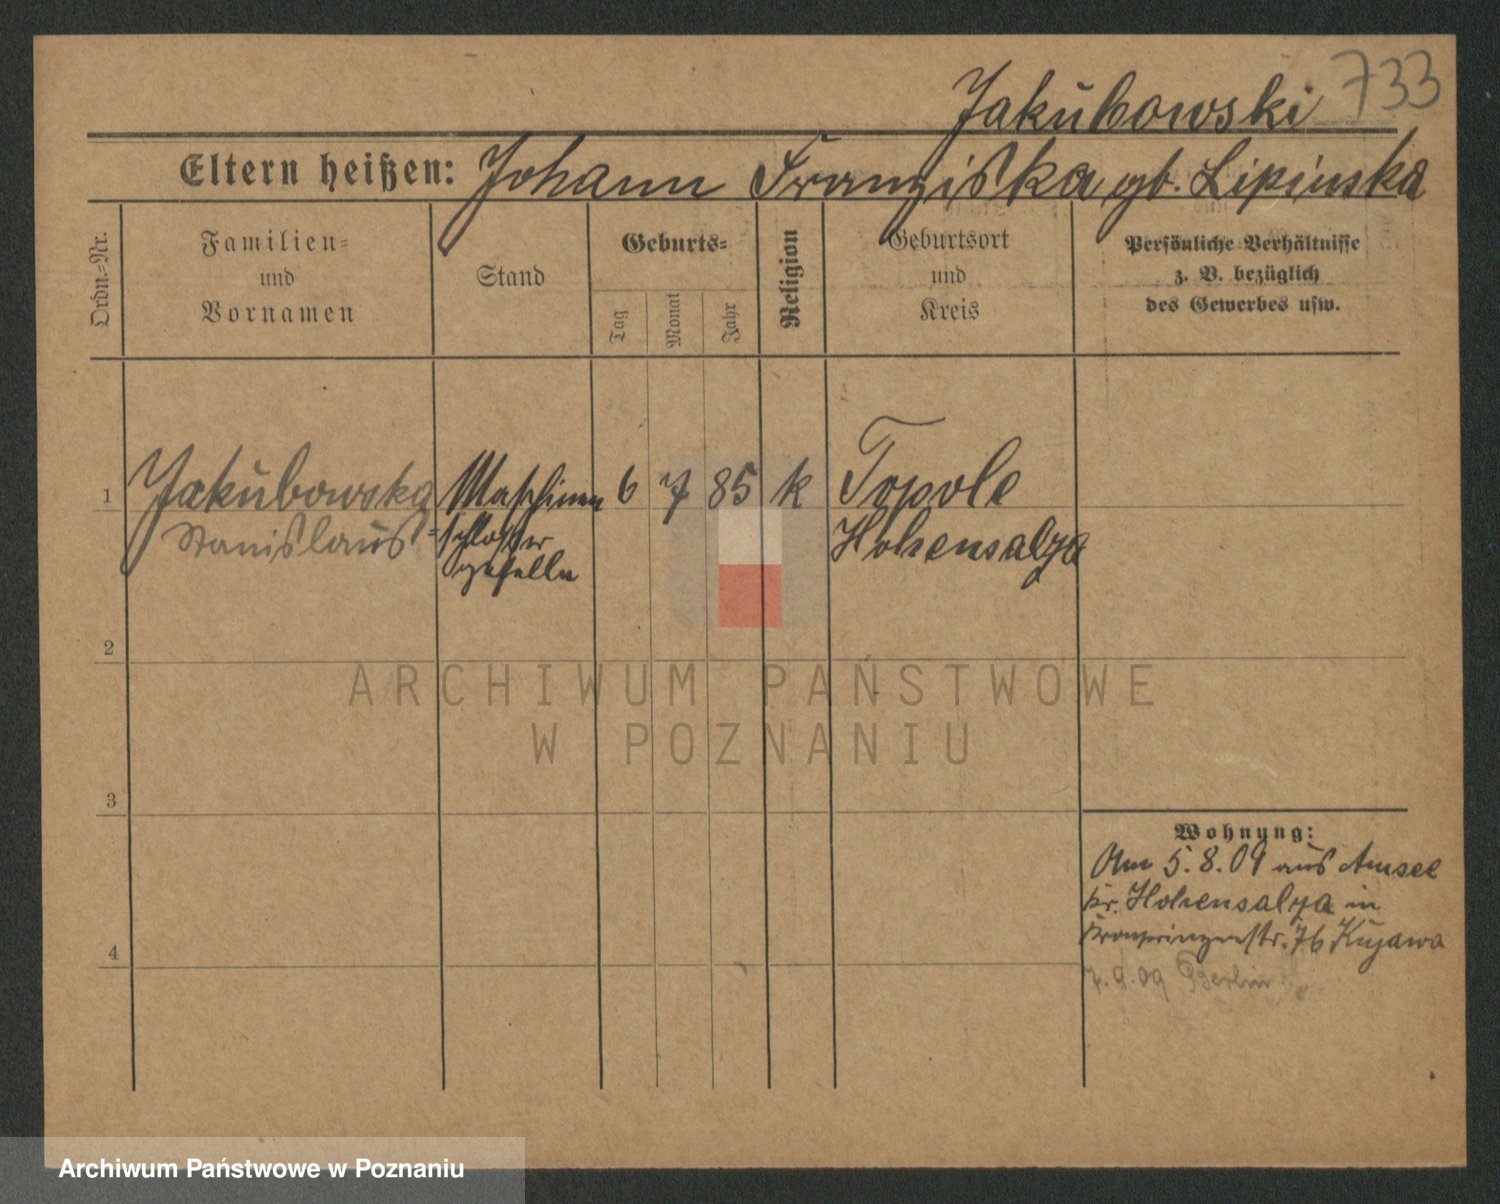 Jakubowski 733
Eltern heißen: Johann Franziska gb. Lipinska
Ordn.=Nr.
Familien=
und
Vornamen
Stand
Geburts=
Tag
Monat
Jahr
Religion
Geburtsort
und
Kreis
Persönliche Verhältnisse
z. B. bezüglich
des Gewerbes usw.
1 Jakubowska Maschinen 6 7 85 k Topole
Stanislaus =schlosser Hohensalza
geselle
2
ARCHIWUM PAŃSTWOWE
W POZNANIU
3
Wohnung:
Am 5.8.09 aus Amsee
kr. Hohensalza in
Kronprinzenstr. 76 Kujawa
4
7.9.09 Berlin
Archiwum Państwowe w Poznaniu